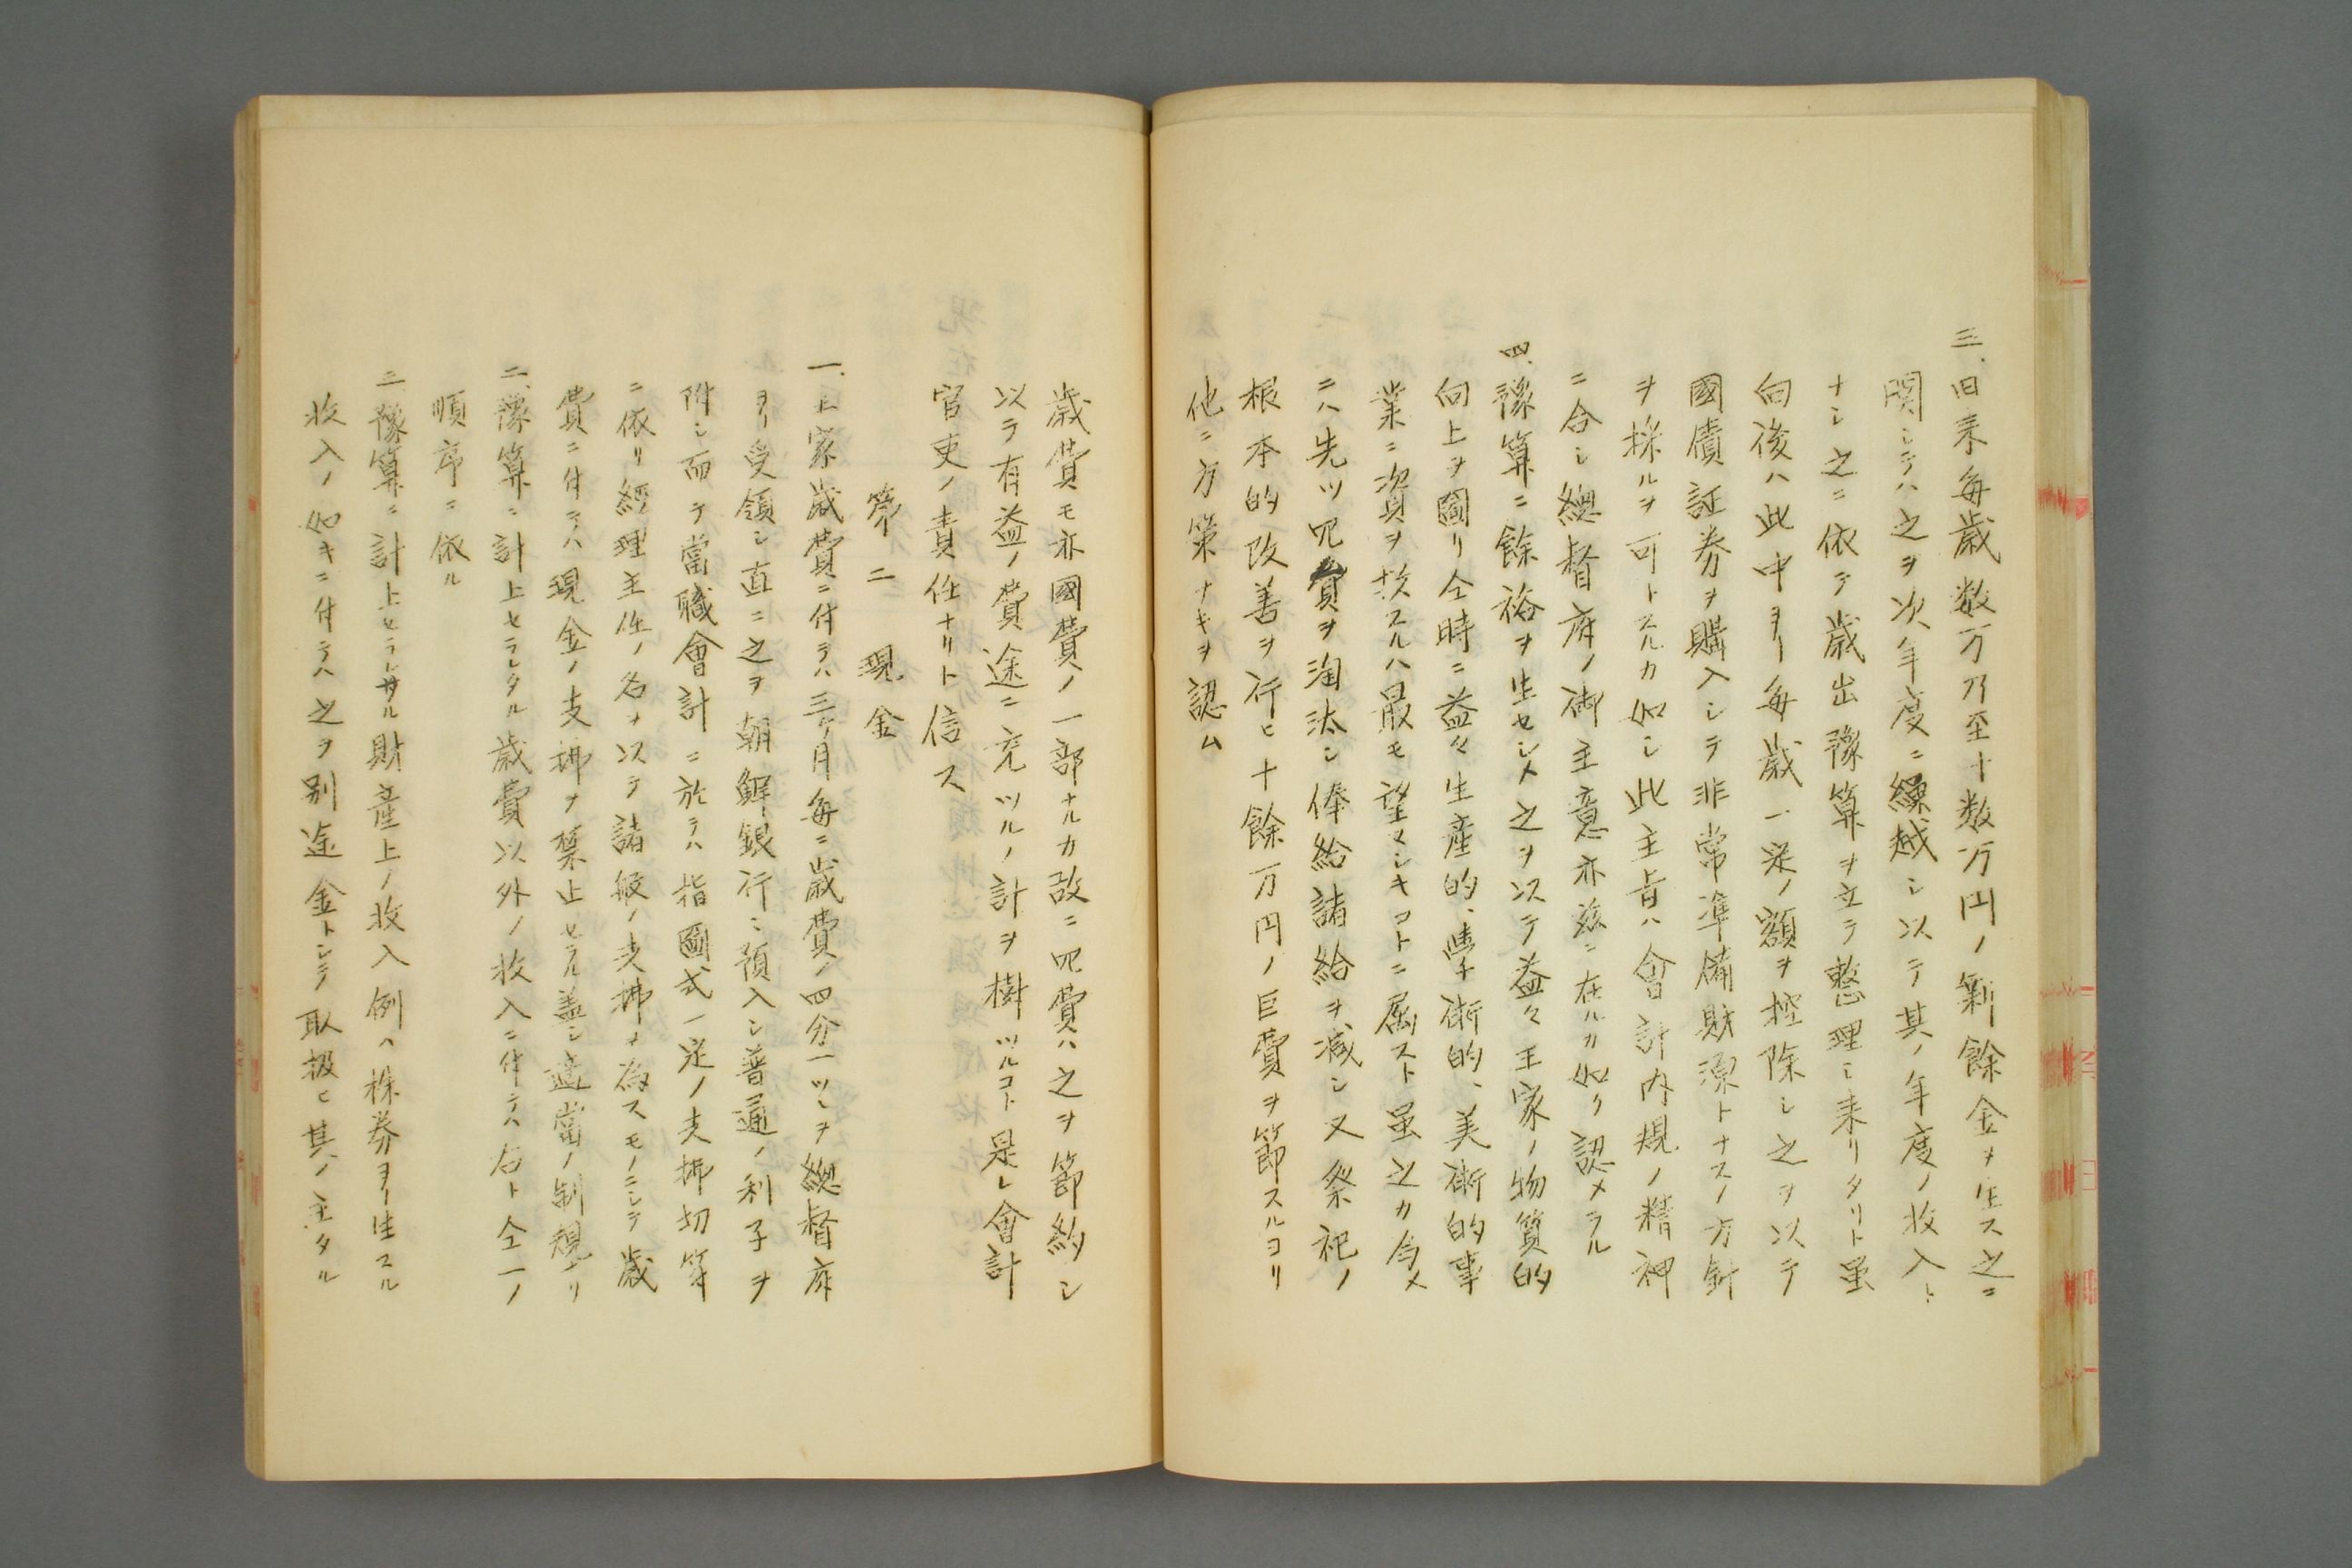 三、旧来毎歳数万乃至十数万円ノ剰餘金ヲ生ス之ニ
関シテハ之ヲ次年度ニ繰越シ以テ其ノ年度ノ收入ト
ナシ之ニ依テ歳出豫算ヲ立テ整理シ来リタリト虽
向後ハ此中ヨリ毎歳一定ノ額ヲ控除シ之ヲ以テ
國債証券ヲ購入シテ非常準備財源トナスノ方針
ヲ採ルヲ可トスルカ如シ此主旨ハ會計内規ノ精神
ニ合シ總督府ノ御主意亦茲ニ在ルカ如ク認メラル
四、豫算ニ餘裕ヲ生セシメ之ヲ以テ益々王家ノ物質的
向上ヲ圖リ仝時ニ益々生産的、學術的、美術的事
業ニ資ヲ投スルハ最モ望マシキコトニ属スト虽之カ為メ
ニハ先ツ冗費ヲ淘汰シ俸給諸給ヲ減シ又祭祀ノ
根本的改善ヲ行ヒ十餘万円ノ巨費ヲ節スルヨリ
他ニ方策ナキヲ認ム
歳費モ亦國費ノ一部ナルカ故ニ冗費ハ之ヲ節約シ
以テ有益ノ費途ニ充ツルノ計ヲ樹ツルコト是レ會計
官吏ノ責任ナリト信ス
第二 現金
一、王家歳費ニ付テハ三ヶ月毎ニ歳費ノ四分一ツヽヲ總督府
ヨリ受領シ直ニ之ヲ朝鮮銀行ニ預入シ普通ノ利子ヲ
附シ而テ當職會計ニ於テハ指圖式一定ノ支拂切符
ニ依リ經理主任ノ名ヲ以テ諸般ノ支拂ヲ為スモノニシテ歳
費ニ付テハ現金ノ支拂ヲ禁止セラル蓋シ適當ノ制規ナリ
二、豫算ニ計上セラレタル歳費以外ノ收入ニ付テハ右ト仝一ノ
順序ニ依ル
三、豫算ニ計上セラレサル財産上ノ收入例ハ株券ヨリ生スル
收入ノ如キニ付テハ之ヲ別途金トシテ取扱ヒ其ノ主タル